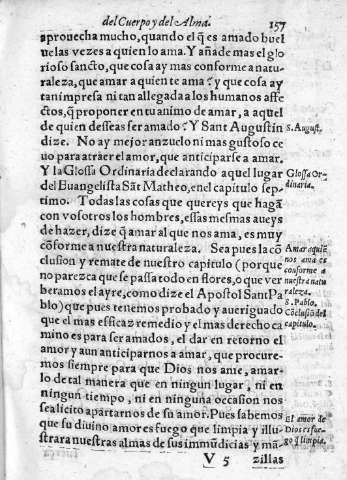 del Cuerpo y del Alma. 157
aprouecha mucho, quando el q̃ es amado buel
ue las vezes a quien lo ama. Y añade mas el glo
rioso sancto, que cosa ay mas conforme a natu-
raleza, que amar a quien te ama? y que cosa ay
tan impresa ni tan allegada a los humanos affe
ctos, q̃ proponer en tu animo de amar, a aquel
de quien desseas ser amado? Y Sant Augustin
S. August.
dize. No ay mejor anzuelo ni mas gustoso ce
uo para atraer el amor, que anticiparse a amar.
Y la Glossa Ordinaria declarando aquel lugar
Glossa Or-
dinaria.
del Euangelista Sãt Matheo, en el capitulo sep
timo. Todas las cosas que quereys que hagã
con vosotros los hombres, essas mesmas aueys
de hazer, dize q̃ amar al que nos ama, es muy
cõforme a nuestra naturaleza. Sea pues la cõ
Amar a quiẽ
nos ama es
conforme a
nuestra natu
raleza.
clusion y remate de nuestro capitulo (porque
no parezca que se passa todo en flores, o que ver
beramos el ayre, como dize el Apostol Sant Pa
S. Pablo.
blo) que pues tenemos probado y aueriguado
Cõclusiõ del
capitulo.
que el mas efficaz remedio y el mas derecho ca
mino es para ser amados, el dar en retorno el
amor y aun anticiparnos a amar, que procure-
mos siempre para que Dios nos ame, amar-
lo de tal manera que en ningun lugar, ni en
ningun tiempo, ni en ninguna occasion nos
sea licito apartarnos de su amor. Pues sabemos
que su diuino amor es fuego que limpia y illu-
El amor de
Dios es fue-
go q̃ limpia.
strara nuestras almas de sus immũdicias y mã-
V 5 zillas